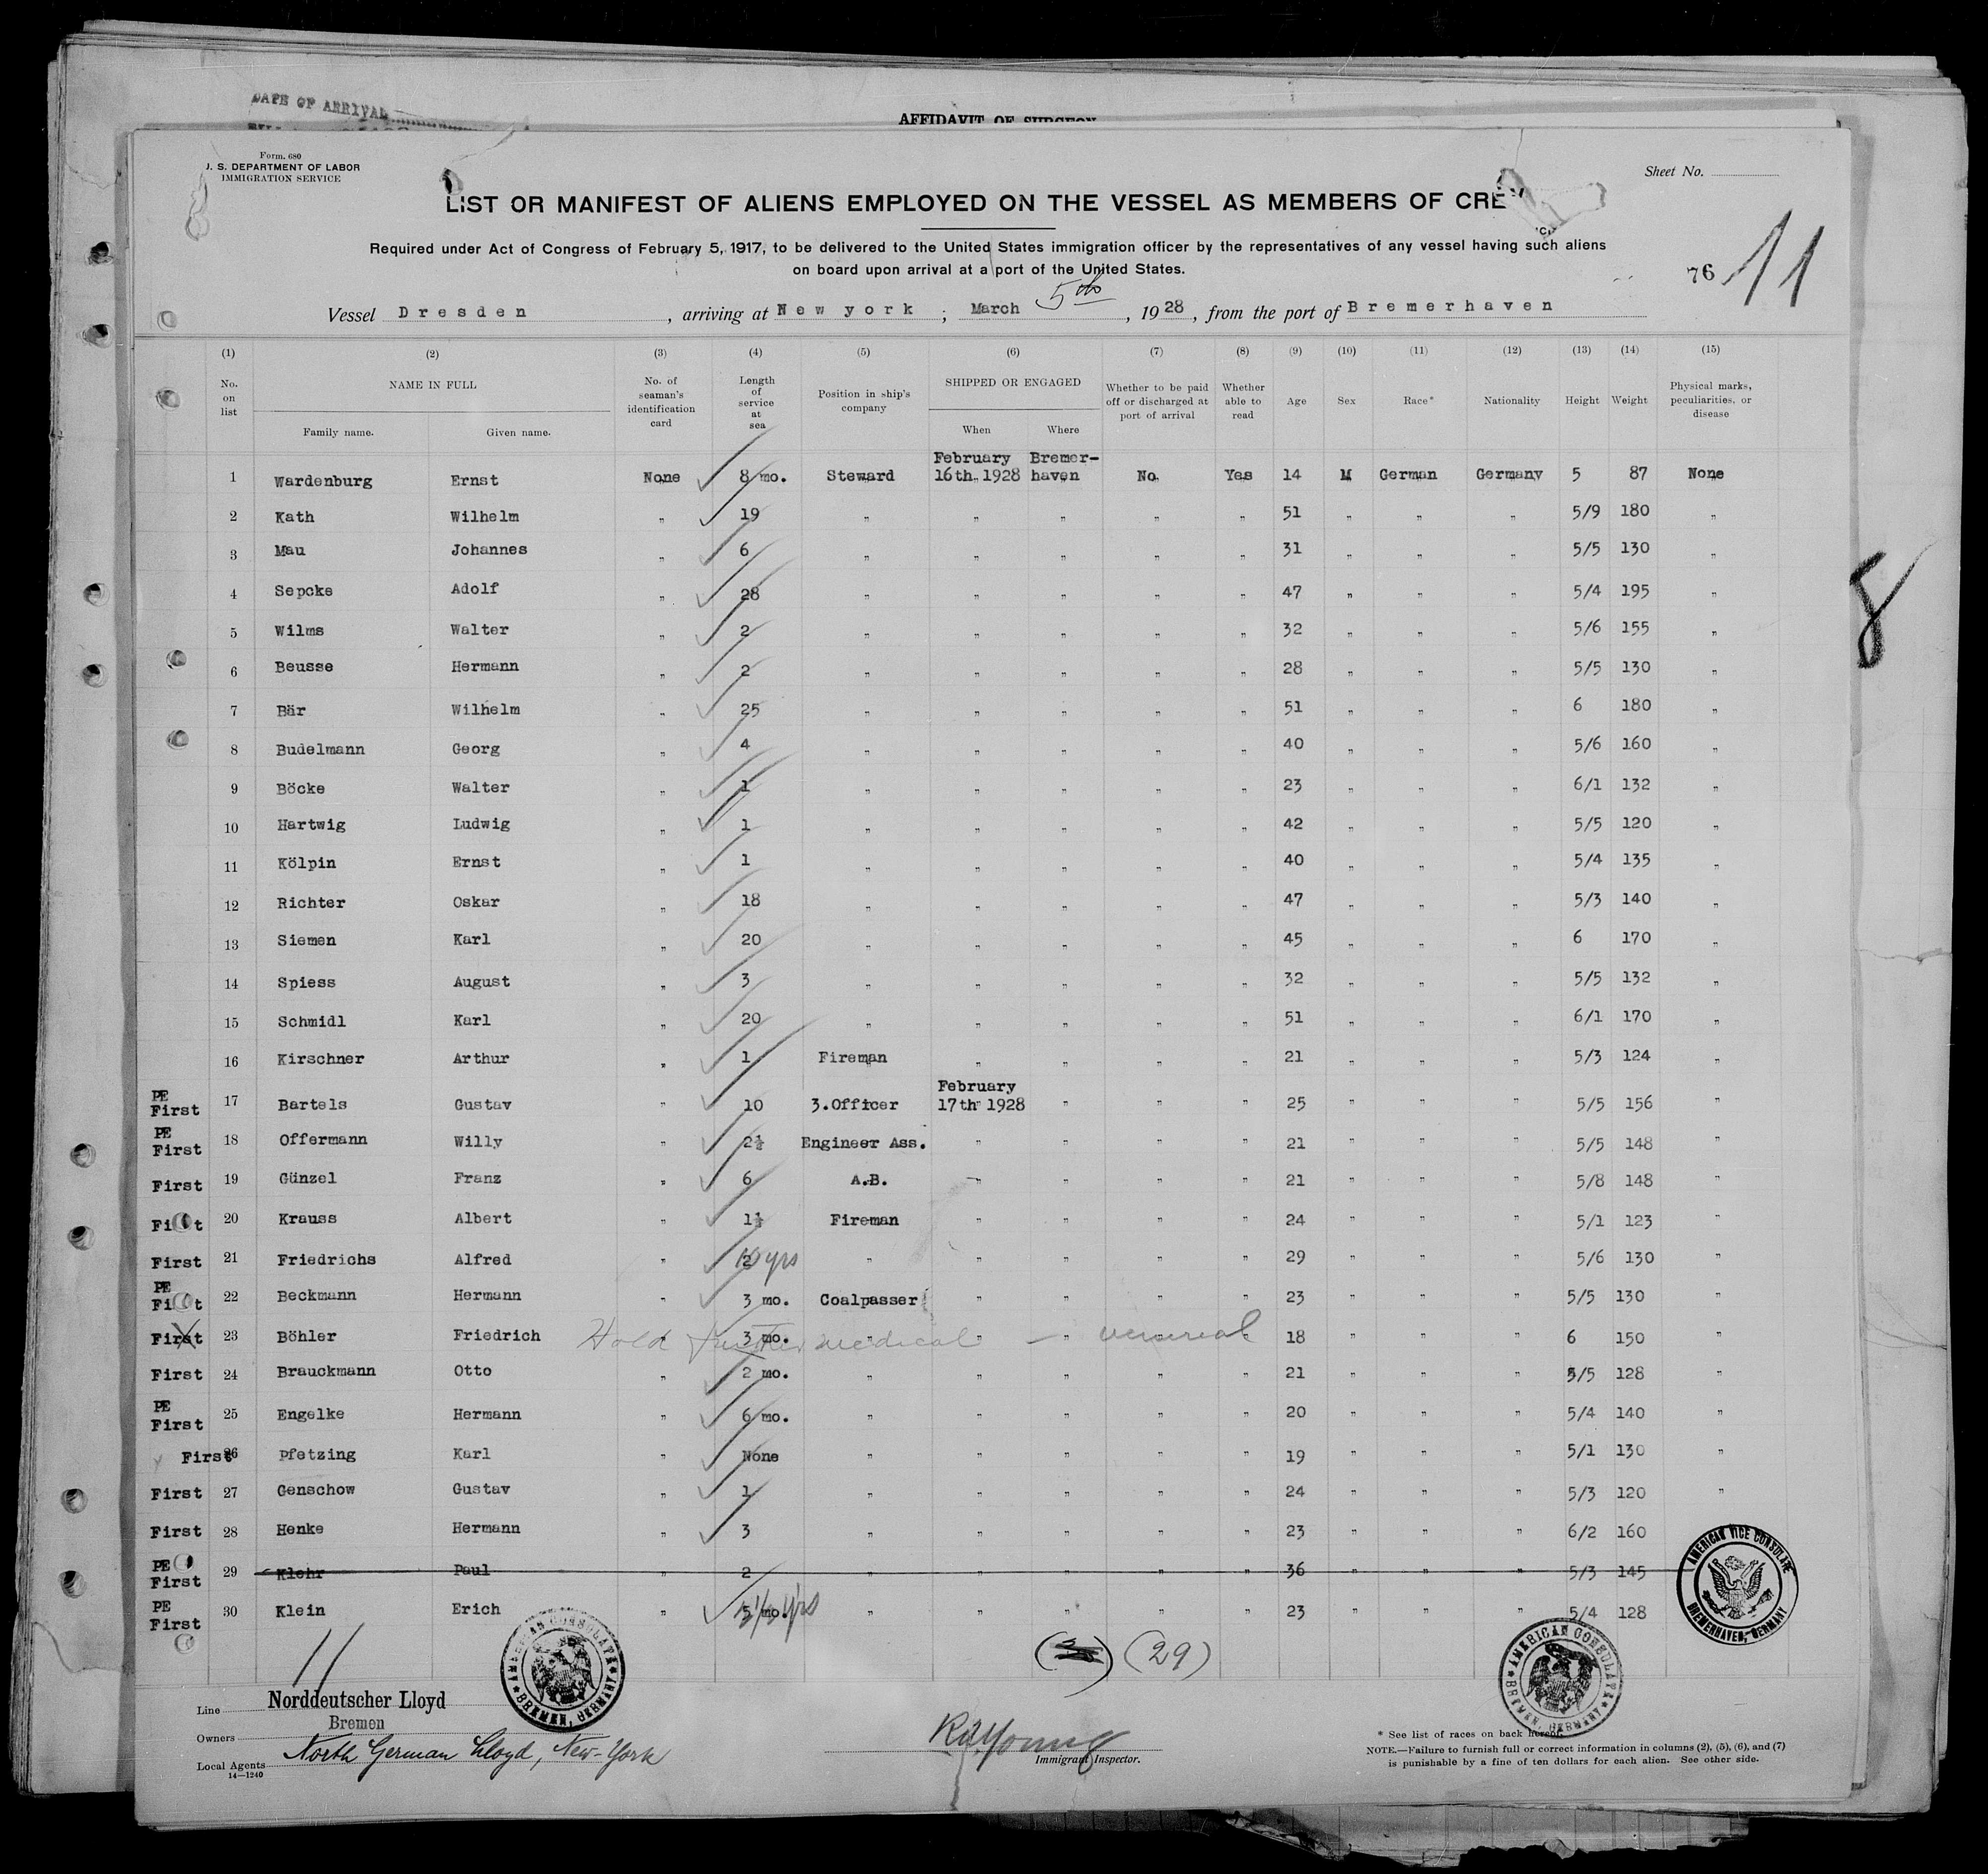 DATE OF ARRIVAL
AFFIDAVIT OF SURGEON
Form. 680
U. S. DEPARTMENT OF LABOR
IMMIGRATION SERVICE
Sheet No.
LIST OR MANIFEST OF ALIENS EMPLOYED ON THE VESSEL AS MEMBERS OF CREW
Required under Act of Congress of February 5, 1917, to be delivered to the United States immigration officer by the representatives of any vessel having such aliens
on board upon arrival at a port of the United States.
76 11
Vessel Dresden, arriving at New york; March 5th, 1928, from the port of Bremerhaven
(1) (2) (3) (4) (5) (6) (7) (8) (9) (10) (11) (12) (13) (14) (15)
No. on list NAME IN FULL Family name. Given name. No. of seaman's identification card Length of service at sea Position in ship's company SHIPPED OR ENGAGED When Where Whether to be paid off or discharged at port of arrival Whether able to read Age Sex Race* Nationality Height Weight Physical marks, peculiarities, or disease
1 Wardenburg Ernst None 8 mo. Steward February 16th. 1928 Bremerhaven No Yes 14 M German Germany 5 87 None
2 Kath Wilhelm " 19 " " " " " 51 " " " 5/9 180 "
3 Mau Johannes " 6 " " " " " 31 " " " 5/5 130 "
4 Sepcke Adolf " 28 " " " " " 47 " " " 5/4 195 "
5 Wilms Walter " 2 " " " " " 32 " " " 5/6 155 "
6 Beusse Hermann " 2 " " " " " 28 " " " 5/5 130 "
7 Bär Wilhelm " 25 " " " " " 51 " " " 6 180 "
8 Budelmann Georg " 4 " " " " " 40 " " " 5/6 160 "
9 Böcke Walter " 1 " " " " " 23 " " " 6/1 132 "
10 Hartwig Ludwig " 1 " " " " " 42 " " " 5/5 120 "
11 Kölpin Ernst " 1 " " " " " 40 " " " 5/4 135 "
12 Richter Oskar " 18 " " " " " 47 " " " 5/3 140 "
13 Siemen Karl " 20 " " " " " 45 " " " 6 170 "
14 Spiess August " 3 " " " " " 32 " " " 5/5 132 "
15 Schmidl Karl " 20 " " " " " 51 " " " 6/1 170 "
16 Kirschner Arthur " 1 Fireman " " " " 21 " " " 5/3 124 "
PE First 17 Bartels Gustav " 10 3.Officer February 17th 1928 " " " 25 " " " 5/5 156 "
PE First 18 Offermann Willy " 2½ Engineer Ass. " " " " 21 " " " 5/5 148 "
First 19 Günzel Franz " 6 A.B. " " " " 21 " " " 5/8 148 "
First 20 Krauss Albert " 1½ Fireman " " " " 24 " " " 5/1 123 "
First 21 Friedrichs Alfred " 2 yrs " " " " " 29 " " " 5/6 130 "
PE First 22 Beckmann Hermann " 3 mo. Coalpasser " " " " 23 " " " 5/5 130 "
First 23 Böhler Friedrich " 3 mo. " " " " " 18 " " " 6 150 "
Hold further medical — venereal
First 24 Brauckmann Otto " 2 mo. " " " " " 21 " " " 5/5 128 "
PE First 25 Engelke Hermann " 6 mo. " " " " " 20 " " " 5/4 140 "
First 26 Pfetzing Karl " None " " " " " 19 " " " 5/1 130 "
First 27 Genschow Gustav " 1 " " " " " 24 " " " 5/3 120 "
First 28 Henke Hermann " 3 " " " " " 23 " " " 6/2 160
PE First 29 Klehr Paul " 2 " " " " " 36 " " " 5/3 145
PE First 30 Klein Erich " 5 mo. yrs " " " " " 23 " " " 5/4 128
8
(29)
11
AMERICAN VICE CONSULATE BREMERHAVEN, GERMANY
AMERICAN CONSULATE BREMEN, GERMANY
AMERICAN CONSULATE BREMEN, GERMANY
Line Norddeutscher Lloyd
Bremen
Owners
Local Agents North German Lloyd, New-York
14—1240
Young
Immigrant Inspector.
* See list of races on back hereof.
NOTE.—Failure to furnish full or correct information in columns (2), (5), (6), and (7)
is punishable by a fine of ten dollars for each alien. See other side.